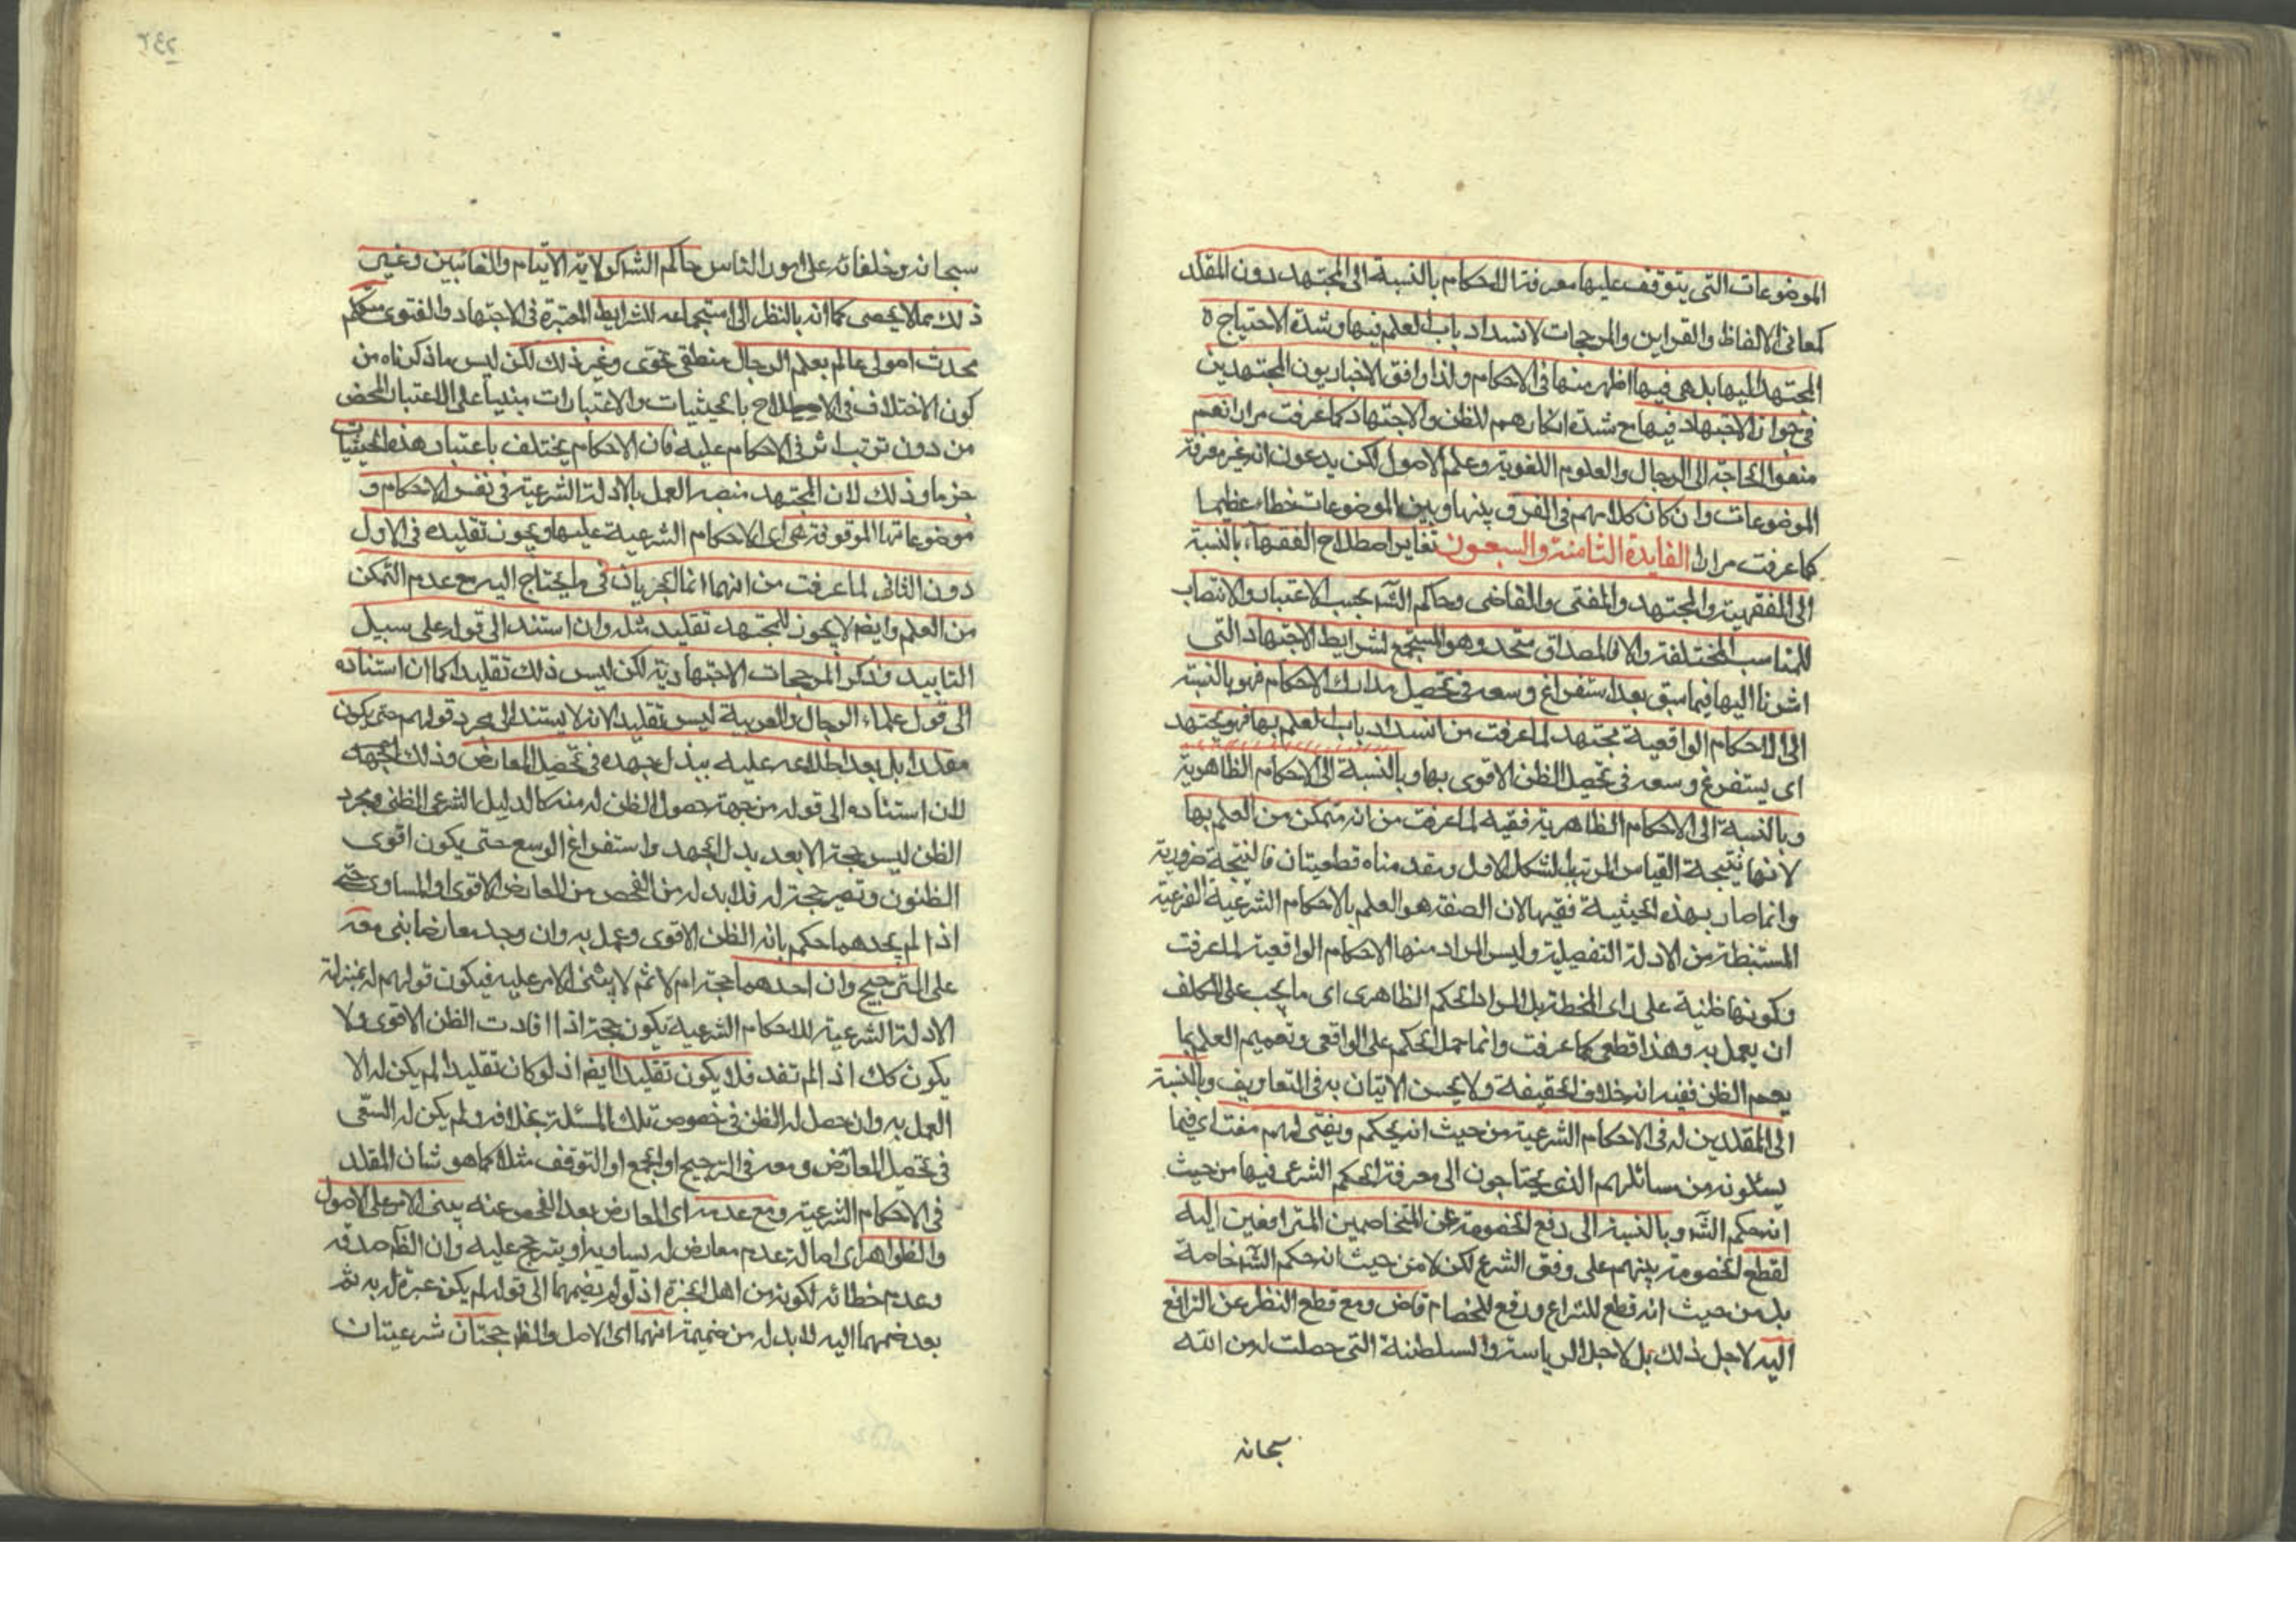 الموضوعات التى يتوقف عليها معرفة الاحكام بالنسبة الى المجتهد دون المقلد
كمعانى الالفاظ والقراين والمرجحات لانسداد باب العلم فيها وشدة الاحتياج
المجتهد اليها بل هى فيها اظهر منها فى الاحكام ولذا وافق الاخباريون المجتهدين
فى جواز الاجتهاد فيها مع شدة انكارهم للظن والاجتهاد كما عرفت مرارا نعم
منعوا الحاجة الى الرجال والعلوم اللغوية وعلم الاصول لكن يدعون انه غير معرفة
الموضوعات وان كان كلامهم فى الفرق بينها وبين الموضوعات خطاء عظيما
كما عرفت مرارا الفايدة الثامنة والسبعون تغاير اصطلاح الفقهاء بالنسبة
الى الفقيه والمجتهد والمفتى والقاضى وحاكم الشرع بحسب الاعتبار والانتصاب
للمناسب المختلفة والا فالمصداق متحد وهو المستجمع لشرايط الاجتهاد التى
اشرنا اليها فيما سبق بعد استفراغ وسعه فى تحصيل مدارك الاحكام فهو بالنسبة
الى الاحكام الواقعية مجتهد لما عرفت من انسداد باب العلم بها فهو يجتهد
اى يستفرغ وسعه فى تحصيل الظن الاقوى بها وبالنسبة الى الاحكام الظاهرية
وبالنسبة الى الاحكام الظاهرية فقيه لما عرفت من انه متمكن من العلم بها
لانها نتيجة القياس المرتب بالشكل الاول ومقدمتاه قطعيتان فالنتيجة ضرورية
وانما صار بهذه الحيثية فقيها لان الفقه هو العلم بالاحكام الشرعية الفرعية
المستنبطة من الادلة التفصيلية وليس المراد منها الاحكام الواقعية لما عرفت
وكونها ظنية على راى المخطئة بل المراد الحكم الظاهرى اى ما يجب على المكلف
ان يعمل به وهذا قطعى كما عرفت وانما حمل الحكم على الواقعى وتعميم العلم بما
يعم الظن ففيه انه خلاف الحقيقة ولا يحسن الاتيان به فى التعاريف وبالنسبة
الى المقلدين له فى الاحكام الشرعية من حيث انه يحكم ويفتى لهم مفت اى فيما
يسئلونه من مسائلهم الذى يحتاجون الى معرفة الحكم الشرعى فيها من حيث
انه حكم الشر وبالنسبة الى دفع الخصومة عن المتخاصمين المترافعين اليه
لقطع الخصومة بينهم على وفق الشرع لكن لا من حيث انه حكم الشر خاصة
بل من حيث انه قطع للنزاع ودفع للخصام قاض ومع قطع النظر عن الترافع
اليه لا جل ذلك بل لاجل الرياسة والسلطنة التى حصلت له من الله
سبحانه
سبحانه وخلفائه على امور الناس حاكم الشر كولاية الايتام والغائبين وغير
ذلك مما لا يحصى كما انه بالنظر الى استجماعه للشرايط المعتبرة فى الاجتهاد والفتوى متكلم
محدث اصولى عالم بعلم الرجال منطقى نحوى وغير ذلك لكن ليس ما ذكرناه من
كون الاختلاف فى الاصطلاح بالحيثيات والاعتبارات مبنيا على الاعتبار المحض
من دون ترتب اثر فى الاحكام عليه فان الاحكام يختلف باعتبار هذه الحيثيات
جزما وذلك لان المجتهد منصبه العمل بالادلة الشرعية فى نفس الاحكام و
موضوعاتها الموقوفة هى اى الاحكام الشرعية عليها ويجوز تقليده فى الاول
دون الثانى لما عرفت من انهما انما يجريان فى ما يحتاج اليه مع عدم التمكن
من العلم وايضا لا يجوز للمجتهد تقليد مثله وان استند الى قوله على سبيل
التاييد وذكر المرجحات الاجتهادية لكن ليس ذلك تقليدا كما ان استناده
الى قول علماء الرجال والعربية ليس تقليدا لانه لا يستند الى مجرد قولهم حتى يكون
مقلدا بل بعد اطلاعه عليه يبذل جهده فى تحصيل المعارض وذلك
لان استناده الى قوله من جهة حصول الظن له منه كالدليل الشرعى الظنى ومجرد
الظن ليس بحجة الا بعد بذل الجهد واستفراغ الوسع حتى يكون اقوى
الظنون وتصير حجة له فلا بد له من الفحص من المعارض الاقوى او المساوى حتى
اذا لم يجدهما حكم بانه الظن الاقوى وعمل به وان وجد معارضا بنى معه
على الترجيح وان احدهما حجة ام لا ثم لا يبتنى الامر عليه فيكون قولهم له بمنزلة
الادلة الشرعية للاحكام الشرعية يكون حجة اذا افادت الظن الاقوى ولا
يكون كك اذ الم تفد فلا يكون تقليدا ايضا اذ لو كان تقليدا لم يكن له الا
العمل به وان حصل له الظن فى خصوص تلك المسئلة بخلافه ولم يكن له السعى
فى تحصيل المعارض ومعه فى الترجيح او الجمع او التوقف مثلا كما هو شان المقلد
فى الاحكام الشرعية ومع عدمه اى المعارض بعد الفحص عنه يبنى الامر على الاصول
والظواهر اى اصالة عدم معارض له يساويه او يترجح عليه وان الظاهر صدقه
وعدم خطائه لكونه من اهل الخبرة اذ لو لم يضمهما الى قوله لم يكن عبرة له به ثم
بعد ضمهما اليه لا بد له من ضميمة انهما اى الاصل والظاهر حجتان شرعيتان